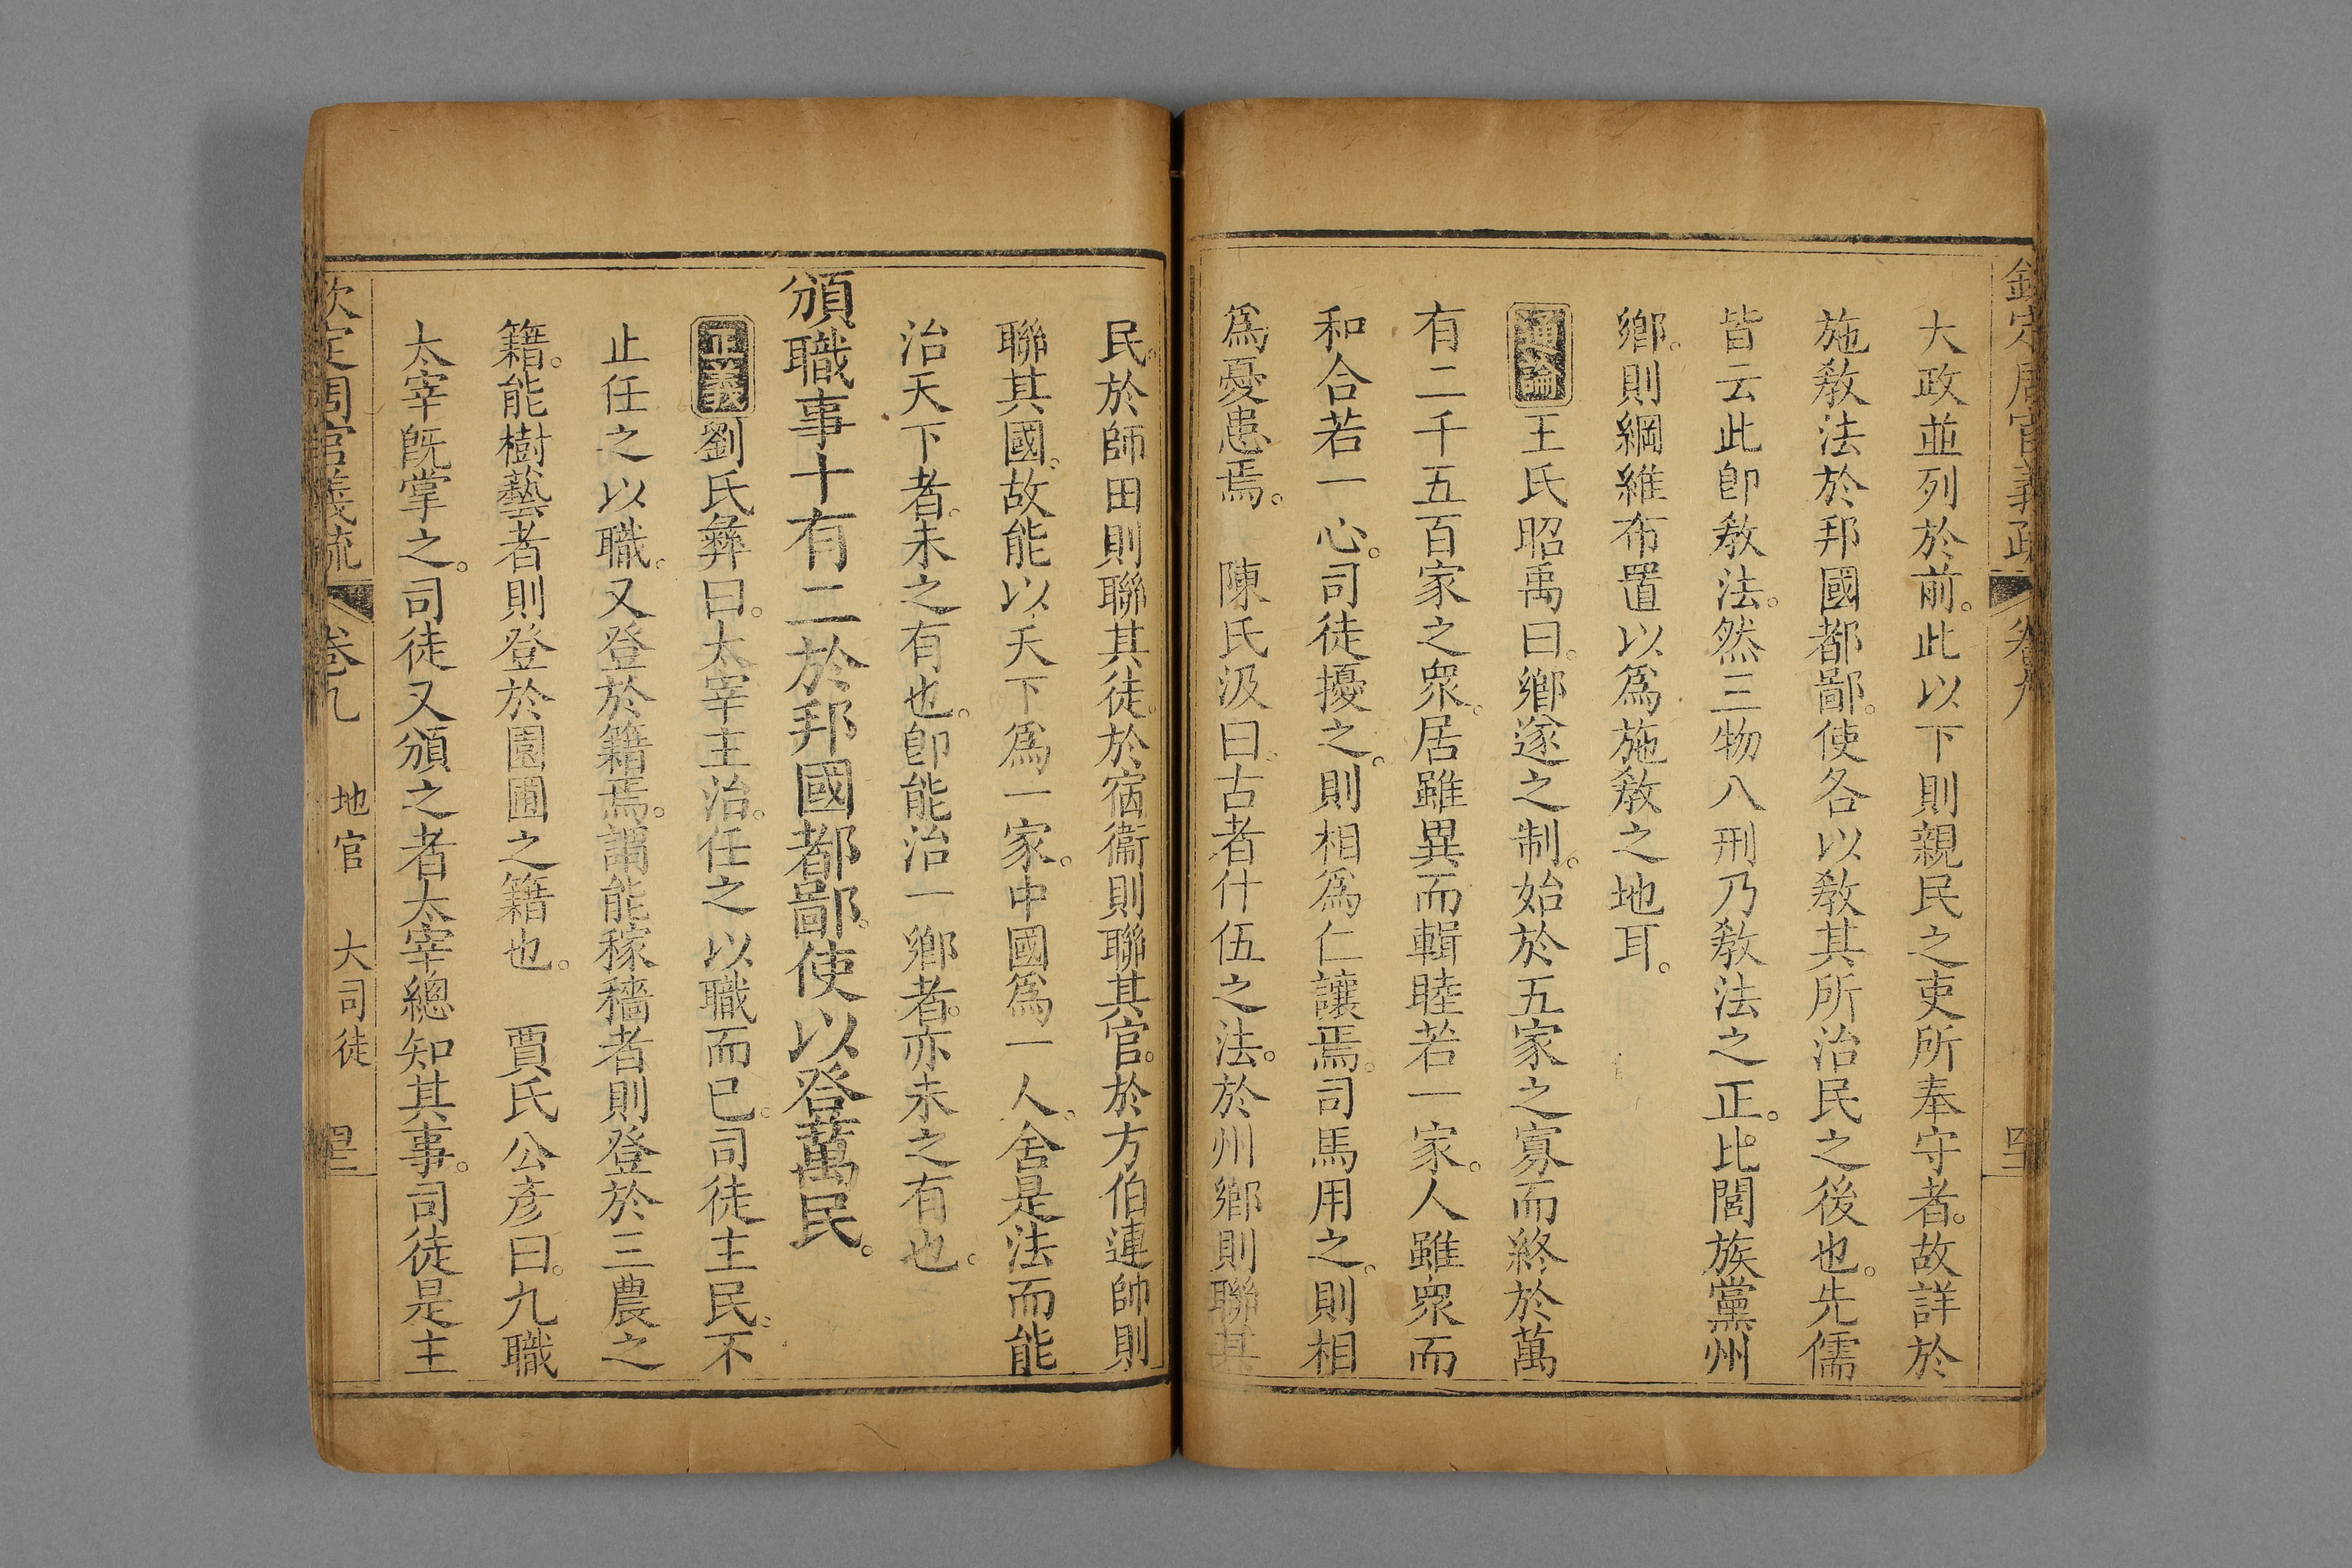 欽定周官義疏 卷九 四二
大政並列於前。此以下則親民之吏所奉守者。故詳於
施敎法於邦國都鄙。使各以敎其所治民之後也。先儒
皆云此卽敎法。然三物八刑乃敎法之正。比閭族黨州
鄉。則綱維布置以爲施敎之地耳。
通論王氏昭禹曰。鄉遂之制。始於五家之寡而終於萬
有二千五百家之衆。居雖異而輯睦若一家。人雖衆而
和合若一心。司徒擾之。則相爲仁讓焉。司馬用之。則相
爲憂患焉。 陳氏汲曰。古者什伍之法。於州鄉則聯其
民。於師田則聯其徒。於宿衞則聯其官。於方伯連帥則
聯其國。故能以天下爲一家。中國爲一人。舍是法而能
治天下者。未之有也。卽能治一鄉者。亦未之有也。
頒職事十有二於邦國都鄙。使以登萬民。
正義劉氏彝曰。太宰主治。任之以職而已。司徒主民。不
止任之以職。又登於籍焉。謂能稼穡者則登於三農之
籍。能樹藝者則登於園圃之籍也。 賈氏公彥曰。九職
太宰旣掌之。司徒又頒之者。太宰總知其事。司徒是主
欽定周官義疏 卷九 地官 大司徒 四三